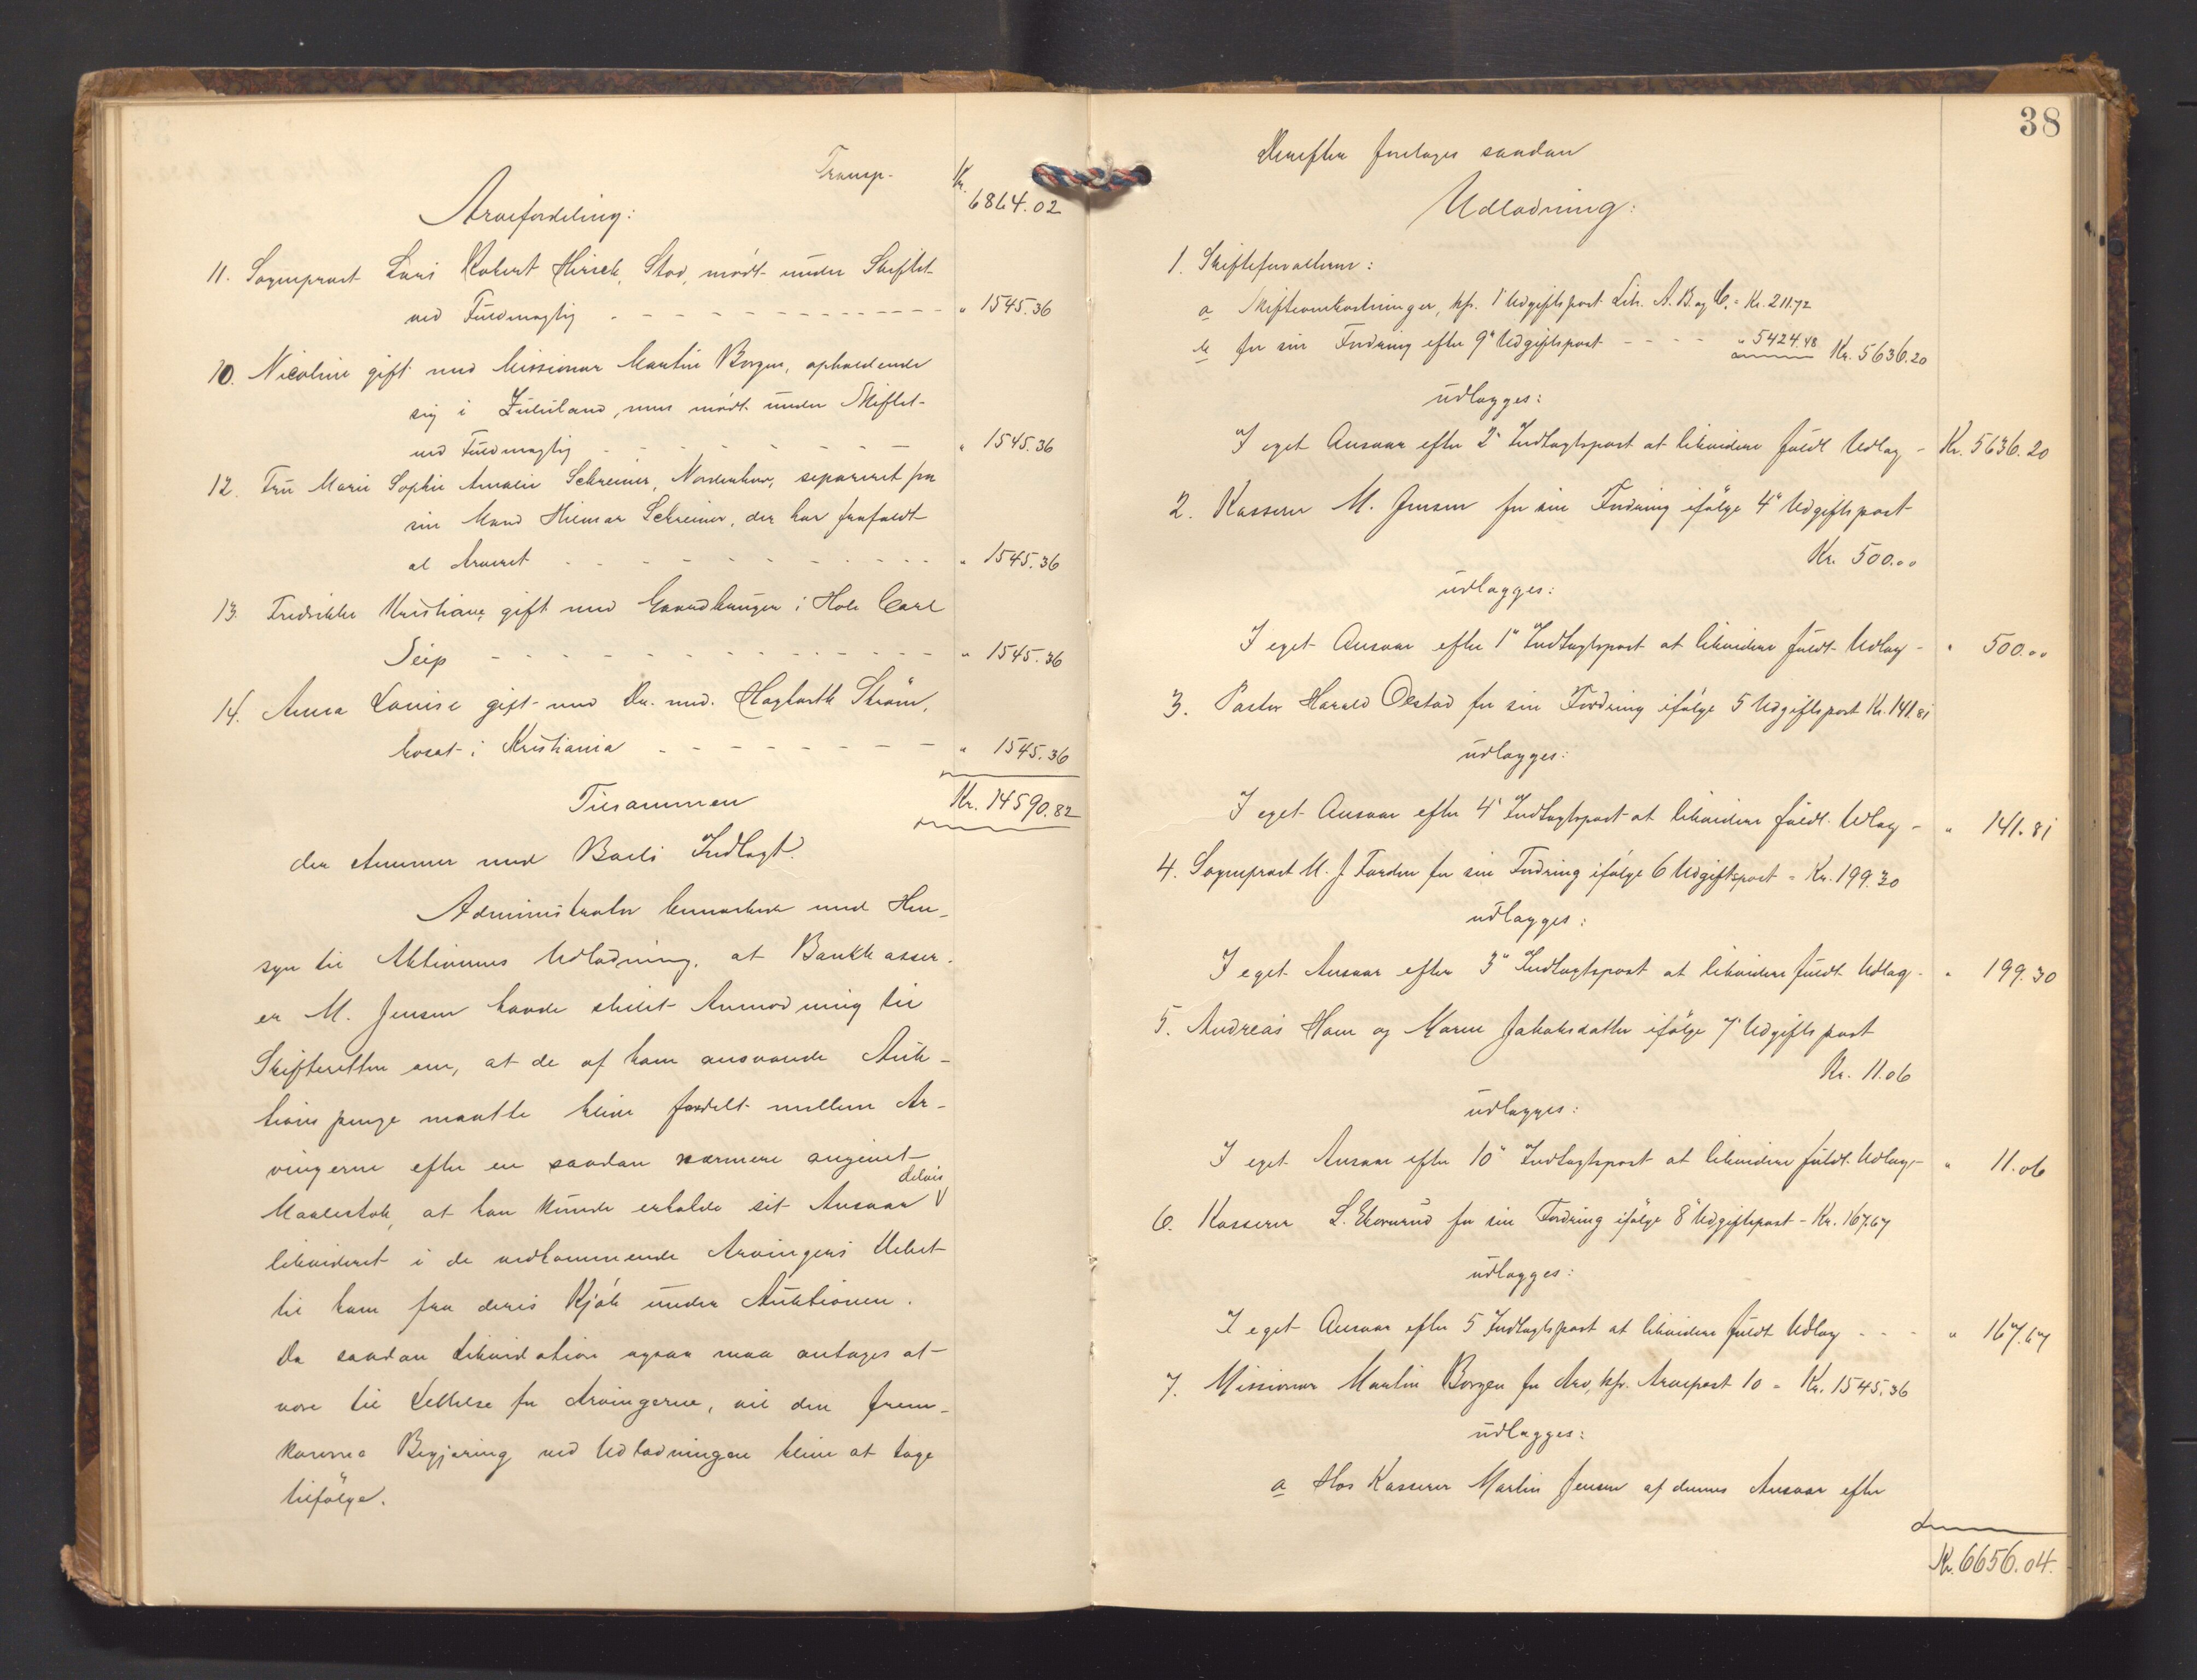 Transp. Kr. 6864.02
Arvefordeling:
11. Sogneprest Lars Robert Hirsch, Stod, mødt under Skiftet
ved Fuldmægtig - - - " 1545.36
10. Nicoline gift med Missionær Martin Borgen, opholdende
sig i Zululand, men mødt under Skiftet
ved Fuldmægtig - - - " 1545.36
12. Fru Marie Sophie Amalie Schreiner, Norderhov, separeret fra
sin Mand Hilmar Schreiner, der har frafaldt
al Arveret - - - " 1545.36
13. Fredrikke Kristiane, gift med Gaardbruger i Hole Carl
Seip - - - " 1545.36
14. Anna Louise gift med Dr. med. Hagbarth Strøm,
bosat i Kristiania - - - " 1545.36
Tilsammen Kr. 14590.82
der stemmer med Boets Indtægt.
Administrator bemærkede med Hen-
syn til Aktivernes Udlodning, at Bankkasser-
er M. Jensen havde stillet Anmodning til
Skifteretten om, at de af ham ansvarede Auk-
tionspenge maatte blive fordelt mellem Ar-
vingerne efter en saadan nærmere angivet
Maalestok, at han kunde erholde sit Ansvar delvis
likvideret i de vedkommende Arvingers Debet
til ham fra deres Kjøb under Auktionen.
Da saadan Likvidation ogsaa maa antages at
være til Lettelse for Arvingerne, vil den frem-
komne Begjæring ved Udlodningen blive at tage
tilfølge.
38
Derefter foretages saadan
Udlodning:
1. Skifteforvalteren:
a Skifteomkostninger, kfr. 1' Udgiftspost Litr. A. B. og C. = Kr. 211.72
b for sin Fordring efter 9' Udgiftspost - - - " 5424.48 Kr. 5636.20
udlægges:
I eget Ansvar efter 2' Indtægtspost at likvidere fuldt Udlæg - Kr. 5636.20
2. Kasserer M. Jensen for sin Fordring ifølge 4' Udgiftspost
Kr. 500.00
udlægges:
I eget Ansvar efter 1' Indtægtspost at likvidere fuldt Udlæg - " 500.00
3. Pastor Harald Olstad for sin Fordring ifølge 5 Udgiftspost Kr. 141.81
udlægges:
I eget Ansvar efter 4' Indtægtspost at likvidere fuldt Udlæg - " 141.81
4. Sogneprest M. J. Færden for sin Fordring ifølge 6 Udgiftspost = Kr. 199.30
udlægges:
I eget Ansvar efter 3' Indtægtspost at likvidere fuldt Udlæg - " 199.30
5. Andreas Hom og Maren Jakobsdatter ifølge 7' Udgiftspost
Kr. 11.06
udlægges:
I eget Ansvar efter 10' Indtægtspost at likvidere fuldt Udlæg - " 11.06
6. Kasserer L. Ekornrud for sin Fordring ifølge 8' Udgiftspost - Kr. 167.67
udlægges:
I eget Ansvar efter 5 Indtægtspost at likvidere fuldt Udlæg - - - " 167.67
7. Missionær Martin Borgen for Arv, kfr. Arvepost 10 = Kr. 1545.36
udlægges:
a Hos Kasserer Martin Jensen af dennes Ansvar efter
Kr. 6656.04.